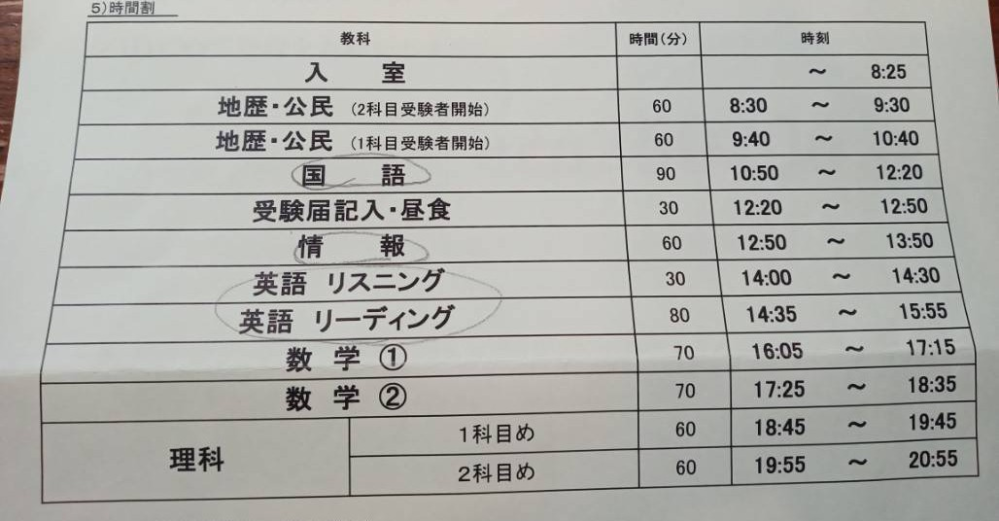 5)時間割
教科 時間(分) 時刻
入 室 ~ 8:25
地歴・公民 (2科目受験者開始) 60 8:30 ~ 9:30
地歴・公民 (1科目受験者開始) 60 9:40 ~ 10:40
国 語 90 10:50 ~ 12:20
受験届記入・昼食 30 12:20 ~ 12:50
情 報 60 12:50 ~ 13:50
英語 リスニング 30 14:00 ~ 14:30
英語 リーディング 80 14:35 ~ 15:55
数 学 ① 70 16:05 ~ 17:15
数 学 ② 70 17:25 ~ 18:35
理科 1科目め 60 18:45 ~ 19:45
2科目め 60 19:55 ~ 20:55